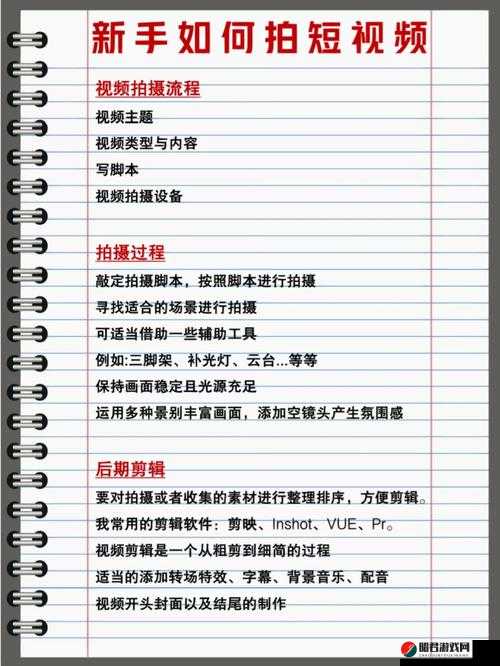 新手如何拍短视频
视频拍摄流程
视频主题
视频类型与内容
写脚本
视频拍摄设备
拍摄过程
敲定拍摄脚本，按照脚本进行拍摄
寻找适合的场景进行拍摄
可适当借助一些辅助工具
例如:三脚架、补光灯、云台...等等
保持画面稳定且光源充足
运用多种景别丰富画面，添加空镜头产生氛围感
后期剪辑
要对拍摄或者收集的素材进行整理排序，方便剪辑。
我常用的剪辑软件：剪映、Inshot、VUE、Pr。
视频剪辑是一个从粗剪到细简的过程
适当的添加转场特效、字幕、背景音乐、配音
视频开头封面以及结尾的制作
昭君游戏网